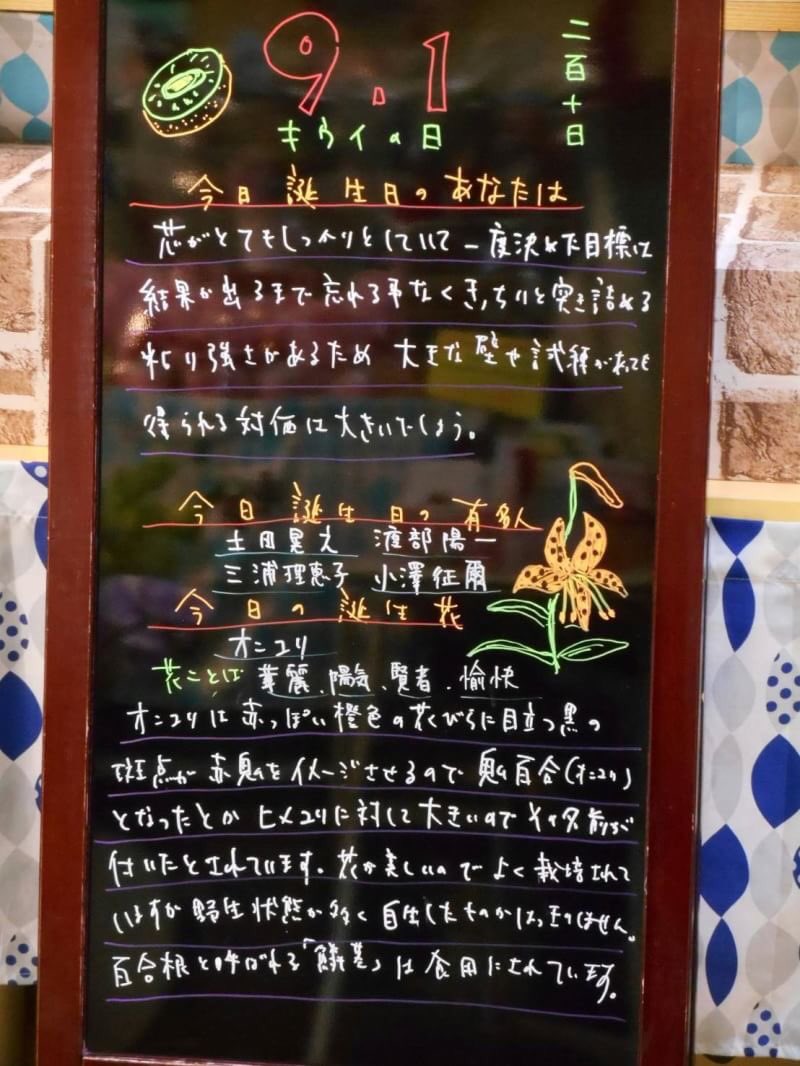 9.1
二百十日
キウイの日
今日誕生日のあなたは
芯がとてもしっかりとしていて一度決めた目標は
結果が出るまで忘れる事なくきっちりと突き詰める
粘り強さがあるため 大きな壁や試練があっても
得られる対価は大きいでしょう。
今日誕生日の有名人
土田晃之 渡部陽一
三浦理恵子 小澤征爾
今日の誕生花
オニユリ
花ことば 華麗、陽気、賢者、愉快
オニユリは赤っぽい橙色の花びらに目立つ黒の
斑点が赤鬼をイメージさせるので 鬼百合(オニユリ)
となったとか ヒメユリに対して大きいのでその名前が
付いたとされています。花が美しいのでよく栽培されて
いますが野生状態が多く自生したものかはっきりしません。
百合根と呼ばれる「鱗茎」は食用にされています。